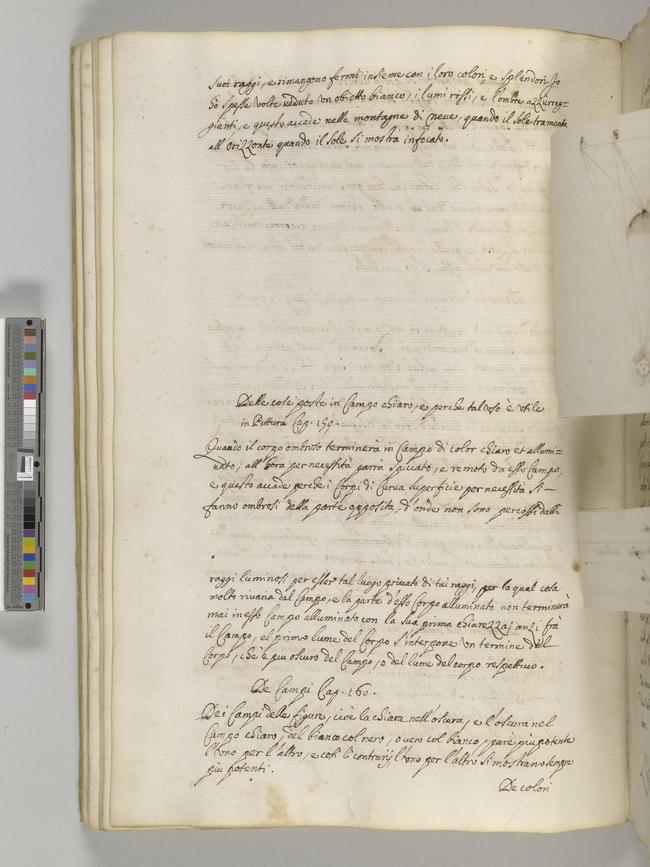 suoi raggi, e rimangono fermi insieme con i loro colori e splendori Jo
hò spesse volte veduto un obietto bianco, i lumi rossi, e l'ombre azzureg-
gianti, e questo accade nelle montagne di neve, quando il sole tramonta
all'orizzonte quando il sole si mostra infocato.
Delle cose poste in Campo chiaro, e perche tal uso è utile
in Pittura Cap. 159.
Quando il corpo ombroso terminerà in Campo di color chiaro et allumi-
nato, all'hora per necessità parrà spiccato, e remoto da esso Campo,
e questo accade perche i Corpi di Curva superficie per necessità si
fanno ombrosi della parte opposita, d'onde non sono percossi dalli
raggi luminosi per esser tal luogo privato di tai raggi, per la qual cosa
molto rivaria dal Campo, e la parte d'esso Corpo alluminato non terminerà
mai in esso Campo alluminato con la sua prima chiarezza, anzi frà
il Campo, e'l primo lume del Corpo s'interpone un termine del
Corpo, che è più oscuro del Campo, o del lume del corpo respettivo.
De Campi Cap. 160.
Dei Campi delle figure, cioè la chiara nell'oscura, e l'oscura nel
Campo chiaro, del bianco col nero, o vero col bianco, pare più potente
l'uno per l'altro, e così li contrarij l'uno per l'altro si mostrano sempre
più potenti.
De colori